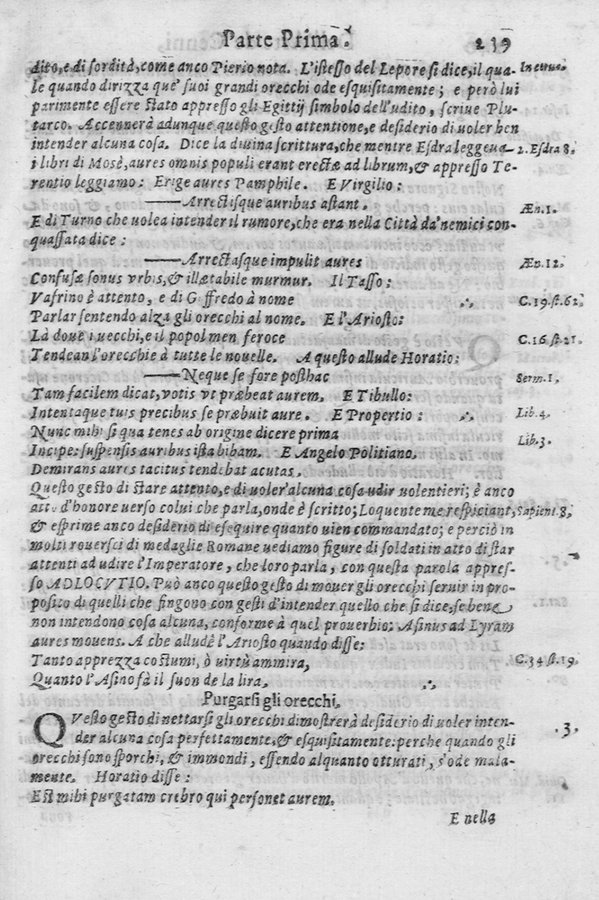 Parte Prima. 239
dito, e di sordità, come anco Pierio nota. L'istesso del Lepore si dice, il qua-
le quando dirizza que' suoi grandi orecchi ode esquisitamente; e però lui
parimente essere stato appresso gli Egittij simbolo dell'udito, scriue Plu-
tarco. Accennerà adunque questo gesto attentione, e desiderio di uoler ben
intender alcuna cosa. Dice la diuina scrittura, che mentre Esdra leggeua 2. Esdra 8.
i libri di Mosè, aures omnis populi erant erectæ ad librum, & appresso Te-
rentio leggiamo: Erige aures Pamphile. E Virgilio:
——Arrectisque auribus astant. Æn. 1.
E di Turno che uolea intender il rumore, che era nella Città da' nemici con-
quassata dice:
——Arrectasque impulit aures Æn. 12.
Confusæ sonus vrbis, & illætabile murmur. Il Tasso:
Vafrino è attento, e di Goffredo à nome C. 19. st. 62.
Parlar sentendo alza gli orecchi al nome. E l'Ariosto:
Là doue i uecchi, e il popol men feroce C. 16. st. 21.
Tendean l'orecchie à tutte le nouelle. A questo allude Horatio:
——Neque se fore posthac Serm. 1.
Tam facilem dicat, votis vt præbeat aurem. E Tibullo:
Intentaque tuis precibus se præbuit aure. E Propertio: Lib. 4.
Nunc mihi si qua tenes ab origine dicere prima
Incipe: suspensis auribus ista bibam. E Angelo Politiano. Lib. 3.
Demirans aures tacitus tendebat acutas.
Questo gesto di stare attento, e di uoler'alcuna cosa udir uolentieri; è anco
atto d'honore uerso colui che parla, onde è scritto; Loquente me respiciant, Sapient. 8.
& esprime anco desiderio di esequire quanto uien commandato; e perciò in
molti rouersci di medaglie Romane uediamo figure di soldati in atto di star
attenti ad udire l'Imperatore, che loro parla, con questa parola appres-
so ADLOCVTIO. Può anco questo gesto di mouer gli orecchi seruir in pro-
posito di quelli che fingono con gesti d'intender quello che si dice, se bene
non intendono cosa alcuna, conforme à quel prouerbio: Asinus ad Lyram
aures mouens. A che allude l'Ariosto quando disse:
Tanto apprezza costumi, ò uirtù ammira, C. 34 st. 19.
Quanto l'Asino fà il suon de la lira.
Purgarsi gli orecchi.
QVesto gesto di nettarsi gli orecchi dimostrerà desiderio di uoler inten- 3.
der alcuna cosa perfettamente, & esquisitamente: perche quando gli
orecchi sono sporchi, & immondi, essendo alquanto otturati, s'ode mala-
mente. Horatio disse:
Est mihi purgatam crebro qui personet aurem.
E nella